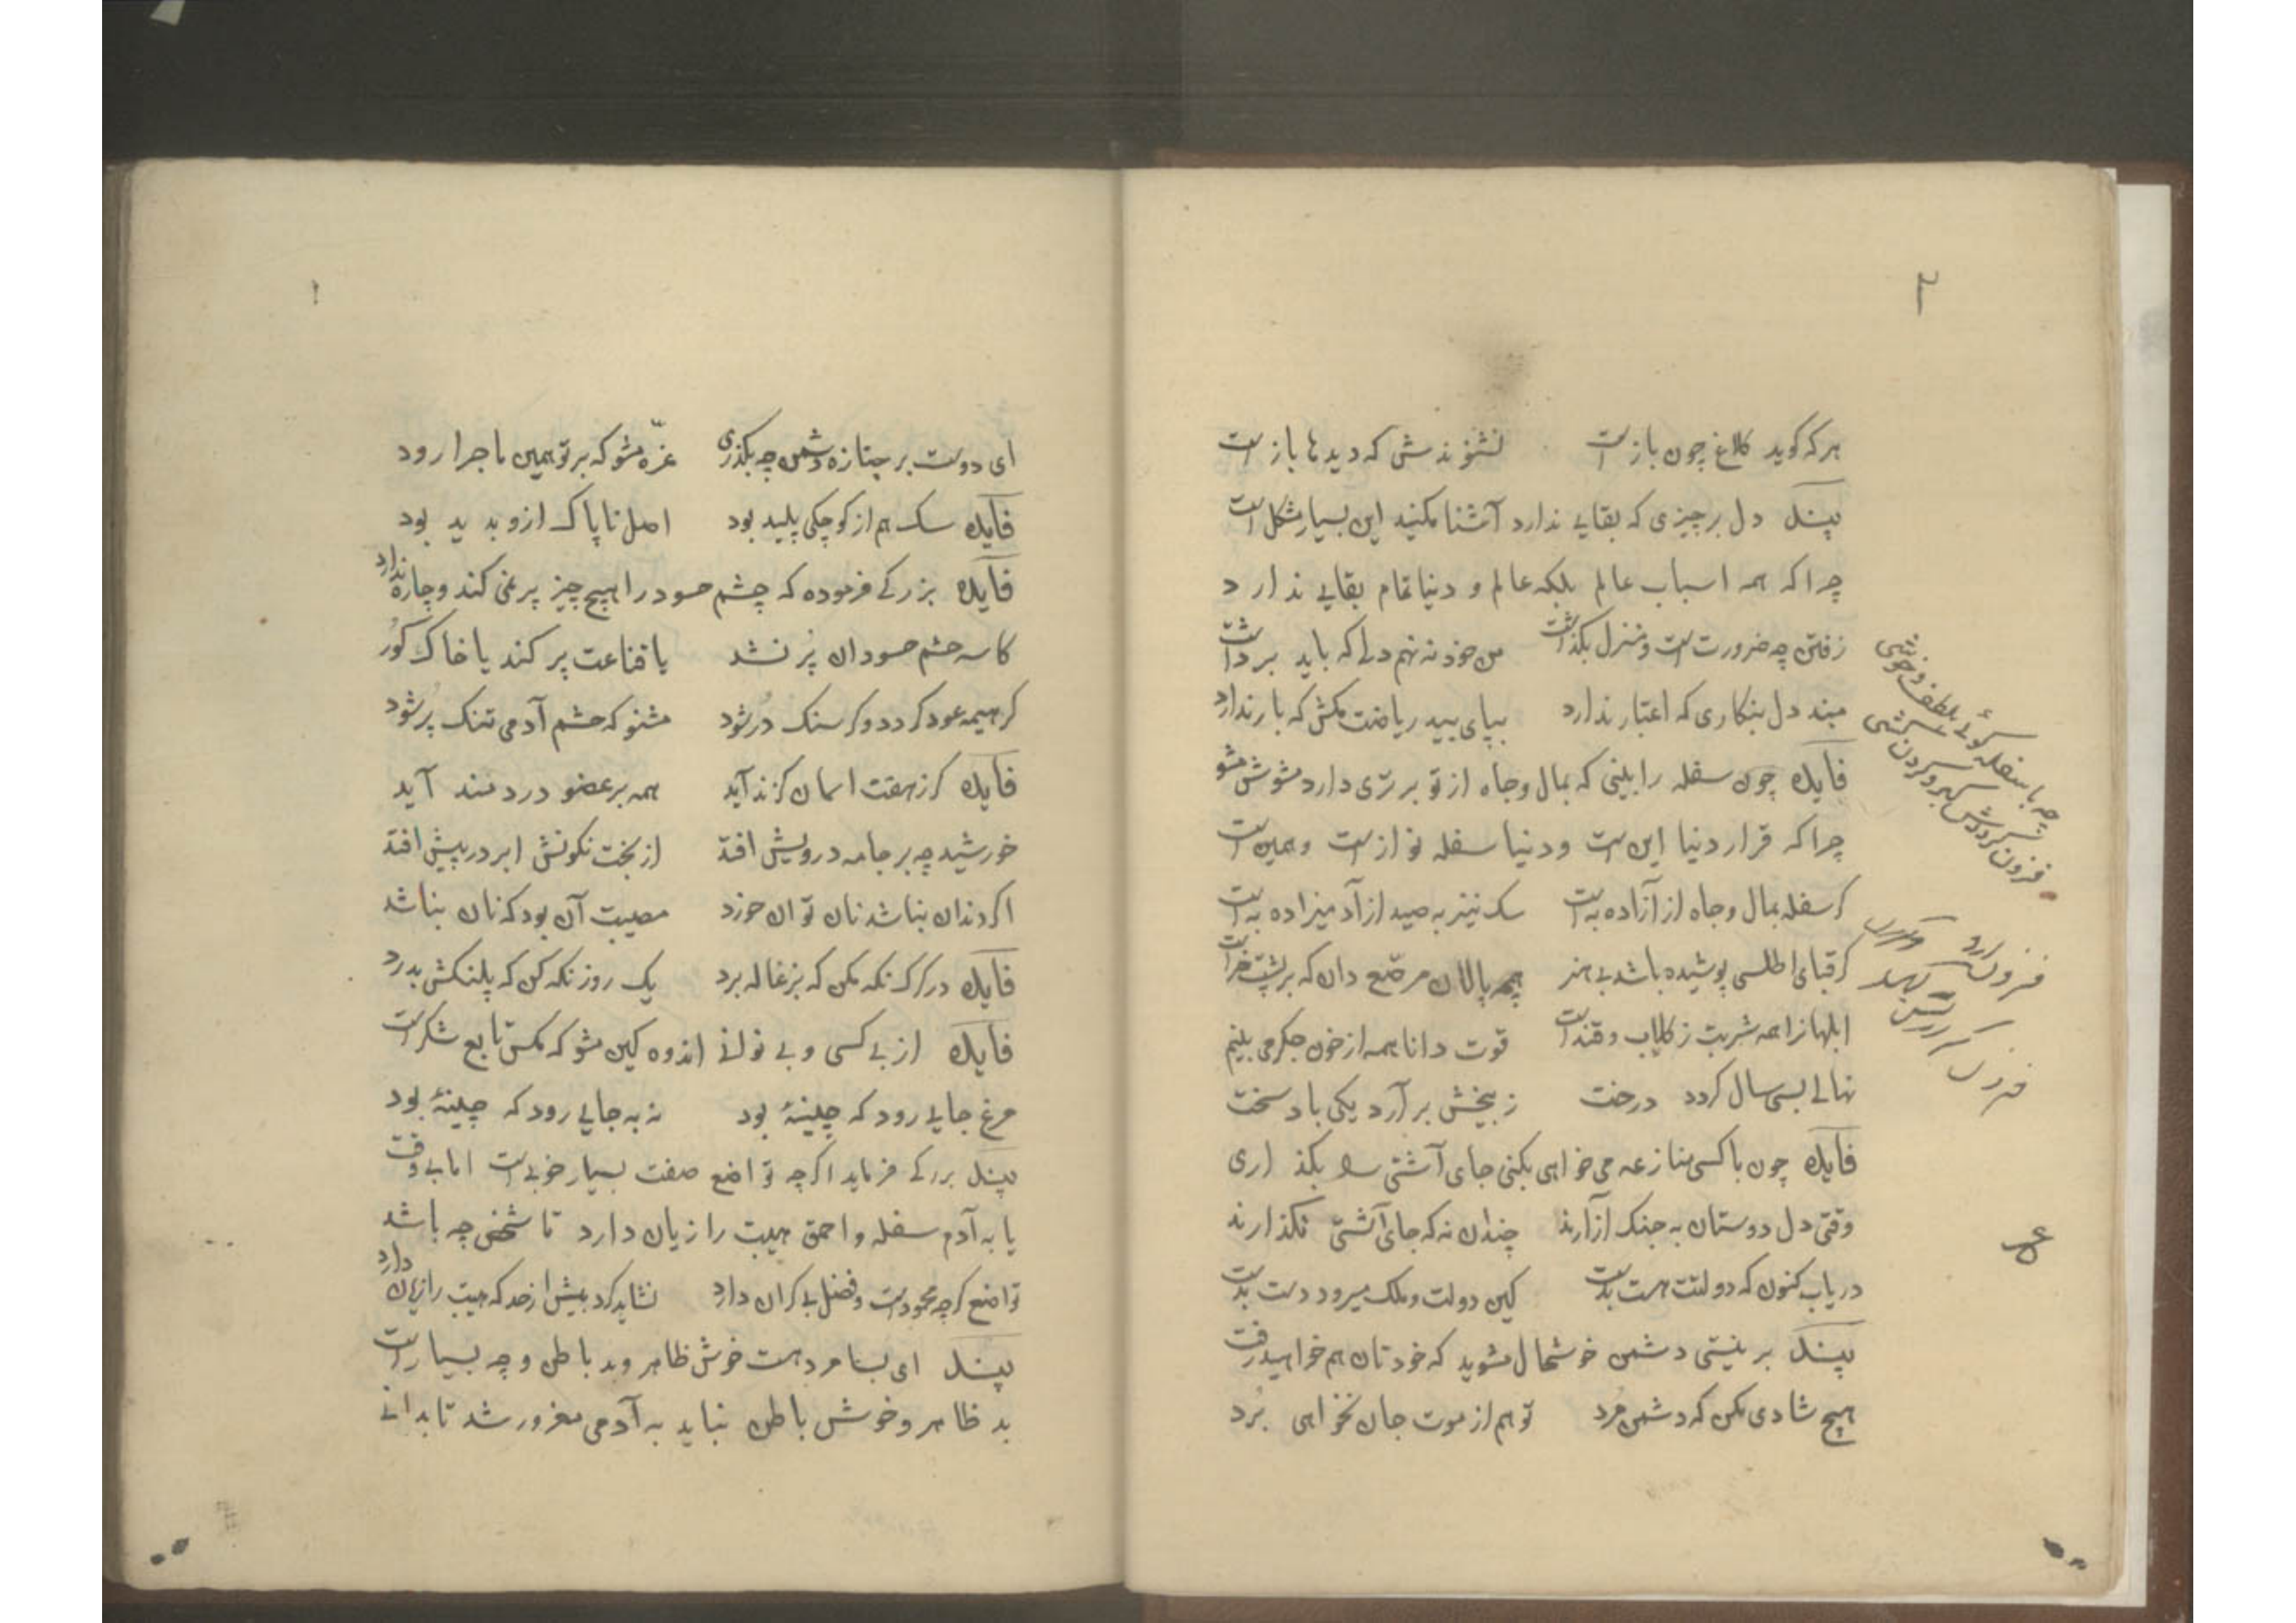 ۲
هر که کوید کلاغ چون بازست نشنوندش که دیدها بازست
پند دل بر چیزی که بقایی ندارد آشنا مکنید این بسیار مشکل است
چرا که همه اسباب عالم بلکه عالم و دنیا تمام بقایی ندارد
زفتن چه ضرورت است و منزل بکذاشت من خود ننهم دلی که باید برداشت
مبند دل بنکاری که اعتبار ندارد بپای بید ریاضت مکش که بار ندارد
فایده چون سفله را بینی که بمال و جاه از تو برتری دارد مشوش مشو
چرا که قرار دنیا این ست و دنیا سفله نوازست و همین ست
کر سفله بمال و جاه از آزاده به است سک نیز به صید از آدمیزاده به است
کر قبای اطلسی پوشیده باشد بی هنر همچه پالان مرصّع دان که بر پشت خر است
ابلهانرا همه شربت ز کلاب و قند است قوت دانا همه از خون جکر می بینم
نهالی بسی سال کردد درخت ز بیخش بر آرد یکی باد سخت
فایده چون با کسی منازعه می خواهی بکنی جای آشتی را بکذاری
وقتی دل دوستان به جنک آزارند چندان نه که جای آشتی نکذارند
دریاب کنون که دولتت هست بدست کین دولت و ملک میرود دست بدست
پند بر نیستی دشمن خوشحال مشوید که خودتان هم خواهید رفت
هیچ شادی مکن که دشمن مُرد تو هم از موت جان نخواهی بُرد
چه با سفله کوئی بلطف و خوشی
فزون کرددش کبر و کردن کشی
۱
ای دوست بر جنازه دشمن چه بکذری غرّه مشو که بر تو همین ماجرا رود
فایده سک هم از کوچکی پلید بود اصل ناپاک ازو پدید بود
فایده بزرکی فرموده که چشم حسود را هیچ چیز پر نمی کند و چاره ندارد
کاسه چشم حسودان پُر نشد یا قناعت پر کند یا خاک کور
کر هیمه عود کردد و کر سنک دُر شود مشنو که چشم آدمی تنک پُر شود
فایده کر زهفت اسمان کزند آید همه بر عضو دردمند آید
خورشید چه بر جامه درویش افتد از بخت نکونش ابر در پیش افتد
اکر دندان نباشد نان توان خورد مصیبت آن بود که نان نباشد
فایده در کرک نکه مکن که بزغاله برد یک روز نکه کن که پلنکش بدرد
فایده از بی کسی و بی نوائی اندوه کین مشو که مکس تابع شکر است
مرغ جایی رود که چینهٔ بود نه به جایی رود که چینهٔ بود
پند بزرکی فرماید اکرچه تواضع صفت بسیار خوبی است اما بی وقت
یا به آدم سفله و احمق هیبت را زیان دارد تا شخص چه باشد
تواضع کرچه محمودست و فضل بی کران دارد نشاید کرد بیش از حد که هیبت را زیان دارد
پند ای بسا مرد هست خوش ظاهر و بد باطن و چه بسیار است
بد ظاهر و خوش باطن نباید به آدمی مغرور شد تا بدانی